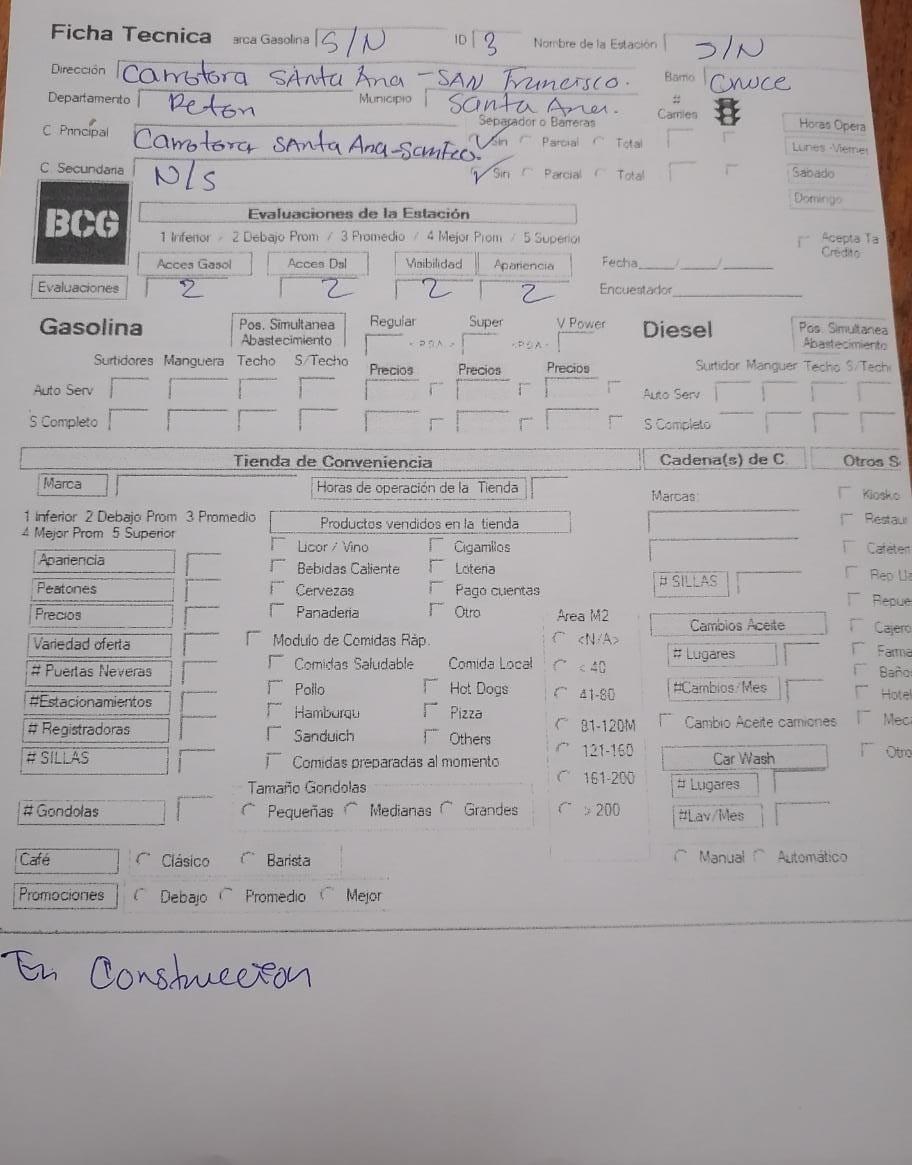 Ficha Tecnica arca Gasolina S/N ID 3 Nombre de la Estación S/N
Dirección Carrotora SAnta Ana - SAN Francisco. Barrio Cruce
Departamento Peton Municipio Santa Ana. # Carriles
Separador o Barreras Horas Opera
C Principal Carrotora SAnta Ana-SamFco. Sin Parcial Total Lunes -Vierner
C. Secundaria N/S Sin Parcial Total Sabado
Domingo
BCG
Evaluaciones de la Estación
1 Inferior / 2 Debajo Prom / 3 Promedio / 4 Mejor Prom / 5 Superior
Acepta Ta
Crédito
Acces Gasol Acces Dsl Visibilidad Apariencia Fecha___/___/___
Evaluaciones 2 2 2 2 Encuestador
Gasolina Pos. Simultanea Abastecimiento Regular Super V Power Diesel Pos. Simultanea Abastecimiento
Surtidores Manguera Techo S/Techo Precios Precios Precios Surtidor Manguer Techo S/Tech
Auto Serv Auto Serv
S Completo S Completo
Tienda de Conveniencia Cadena(s) de C Otros S
Marca Horas de operación de la Tienda Marcas: Kiosko
1 Inferior 2 Debajo Prom 3 Promedio Productos vendidos en la tienda Restaur
4 Mejor Prom 5 Superior
Apariencia Licor / Vino Cigarrllos Cafeten
Peatones Bebidas Caliente Loteria # SILLAS Rep Lla
Cervezas Pago cuentas Repue
Precios Panaderia Otro Area M2 Cambios Aceite Cajero
Variedad oferta Modulo de Comidas Ráp. <N/A> Farma
# Puertas Neveras Comidas Saludable Comida Local < 40 # Lugares Baño
#Estacionamientos Pollo Hot Dogs 41-80 #Cambios/Mes Hote
# Registradoras Hamburqu Pizza 81-120M Cambio Aceite camiones Mec
# SILLAS Sanduich Others 121-160 Car Wash Otro
Comidas preparadas al momento 161-200 # Lugares
Tamaño Gondolas
# Gondolas Pequeñas Medianas Grandes > 200 #Lav/Mes
Café Clásico Barista Manual Automático
Promociones Debajo Promedio Mejor
En Construccion